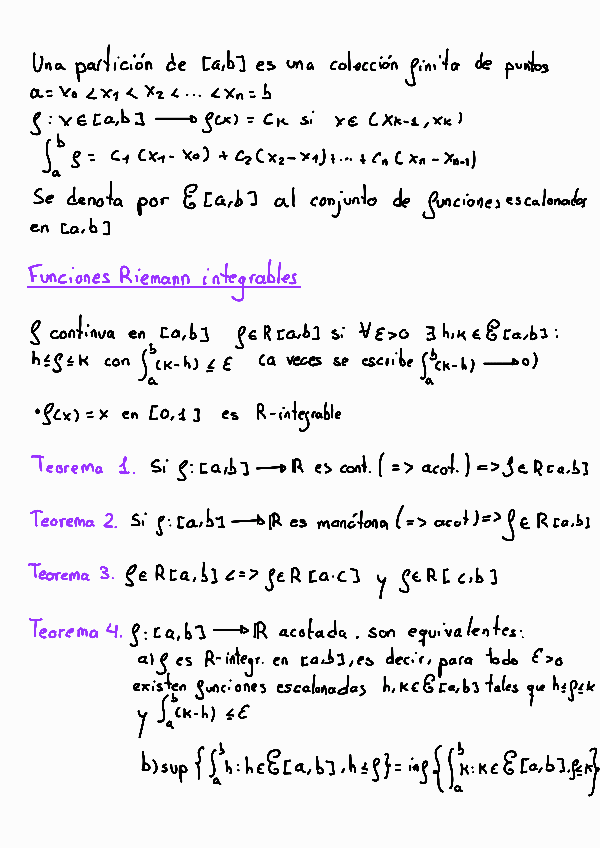 Una partición de [a,b] es una colección finita de puntos
a = x₀ < x₁ < x₂ < ... < xₙ = b
f : x ∈ [a,b] → f(x) = cₖ si x ∈ (xₖ₋₁, xₖ)
∫ₐᵇ f = c₁(x₁ - x₀) + c₂(x₂ - x₁) + ... + cₙ(xₙ - xₙ₋₁)
Se denota por ℰ[a,b] al conjunto de funciones escalonadas
en [a,b]
Funciones Riemann integrables
f continua en [a,b] f ∈ R[a,b] si ∀ε>0 ∃ h,k ∈ ℰ[a,b] :
h ≤ f ≤ k con ∫ₐᵇ (k-h) ≤ ε (a veces se escribe ∫ₐᵇ (k-h) → 0)
• f(x) = x en [0,1] es R-integrable
Teorema 1. Si f : [a,b] → ℝ es cont. (=> acot.) => f ∈ R[a,b]
Teorema 2. Si f : [a,b] → ℝ es monótona (=> acot) => f ∈ R[a,b]
Teorema 3. f ∈ R[a,b] <=> f ∈ R[a,c] y f ∈ R[c,b]
Teorema 4. f : [a,b] → ℝ acotada. son equivalentes:
a) f es R-integr. en [a,b], es decir, para todo ε>0
existen funciones escalonadas h,k ∈ ℰ[a,b] tales que h ≤ f ≤ k
y ∫ₐᵇ (k-h) ≤ ε
b) sup {∫ₐᵇ h : h ∈ ℰ[a,b], h ≤ f} = inf {∫ₐᵇ k : k ∈ ℰ[a,b], f ≤ k}